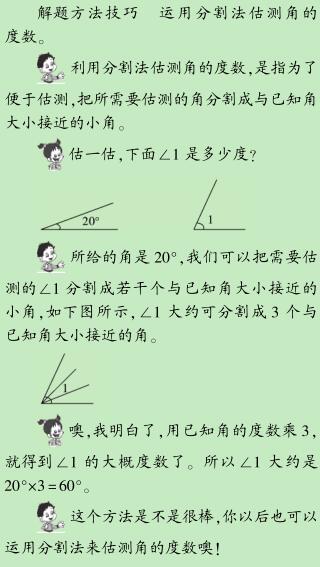 解题方法技巧 运用分割法估测角的
度数。
利用分割法估测角的度数,是指为了
便于估测,把所需要估测的角分割成与已知角
大小接近的小角。
估一估,下面∠1 是多少度?
20°
1
所给的角是 20°,我们可以把需要估
测的∠1 分割成若干个与已知角大小接近的
小角,如下图所示,∠1 大约可分割成 3 个与
已知角大小接近的角。
1
噢,我明白了,用已知角的度数乘 3,
就得到∠1 的大概度数了。所以∠1 大约是
20°×3=60°。
这个方法是不是很棒,你以后也可以
运用分割法来估测角的度数噢!